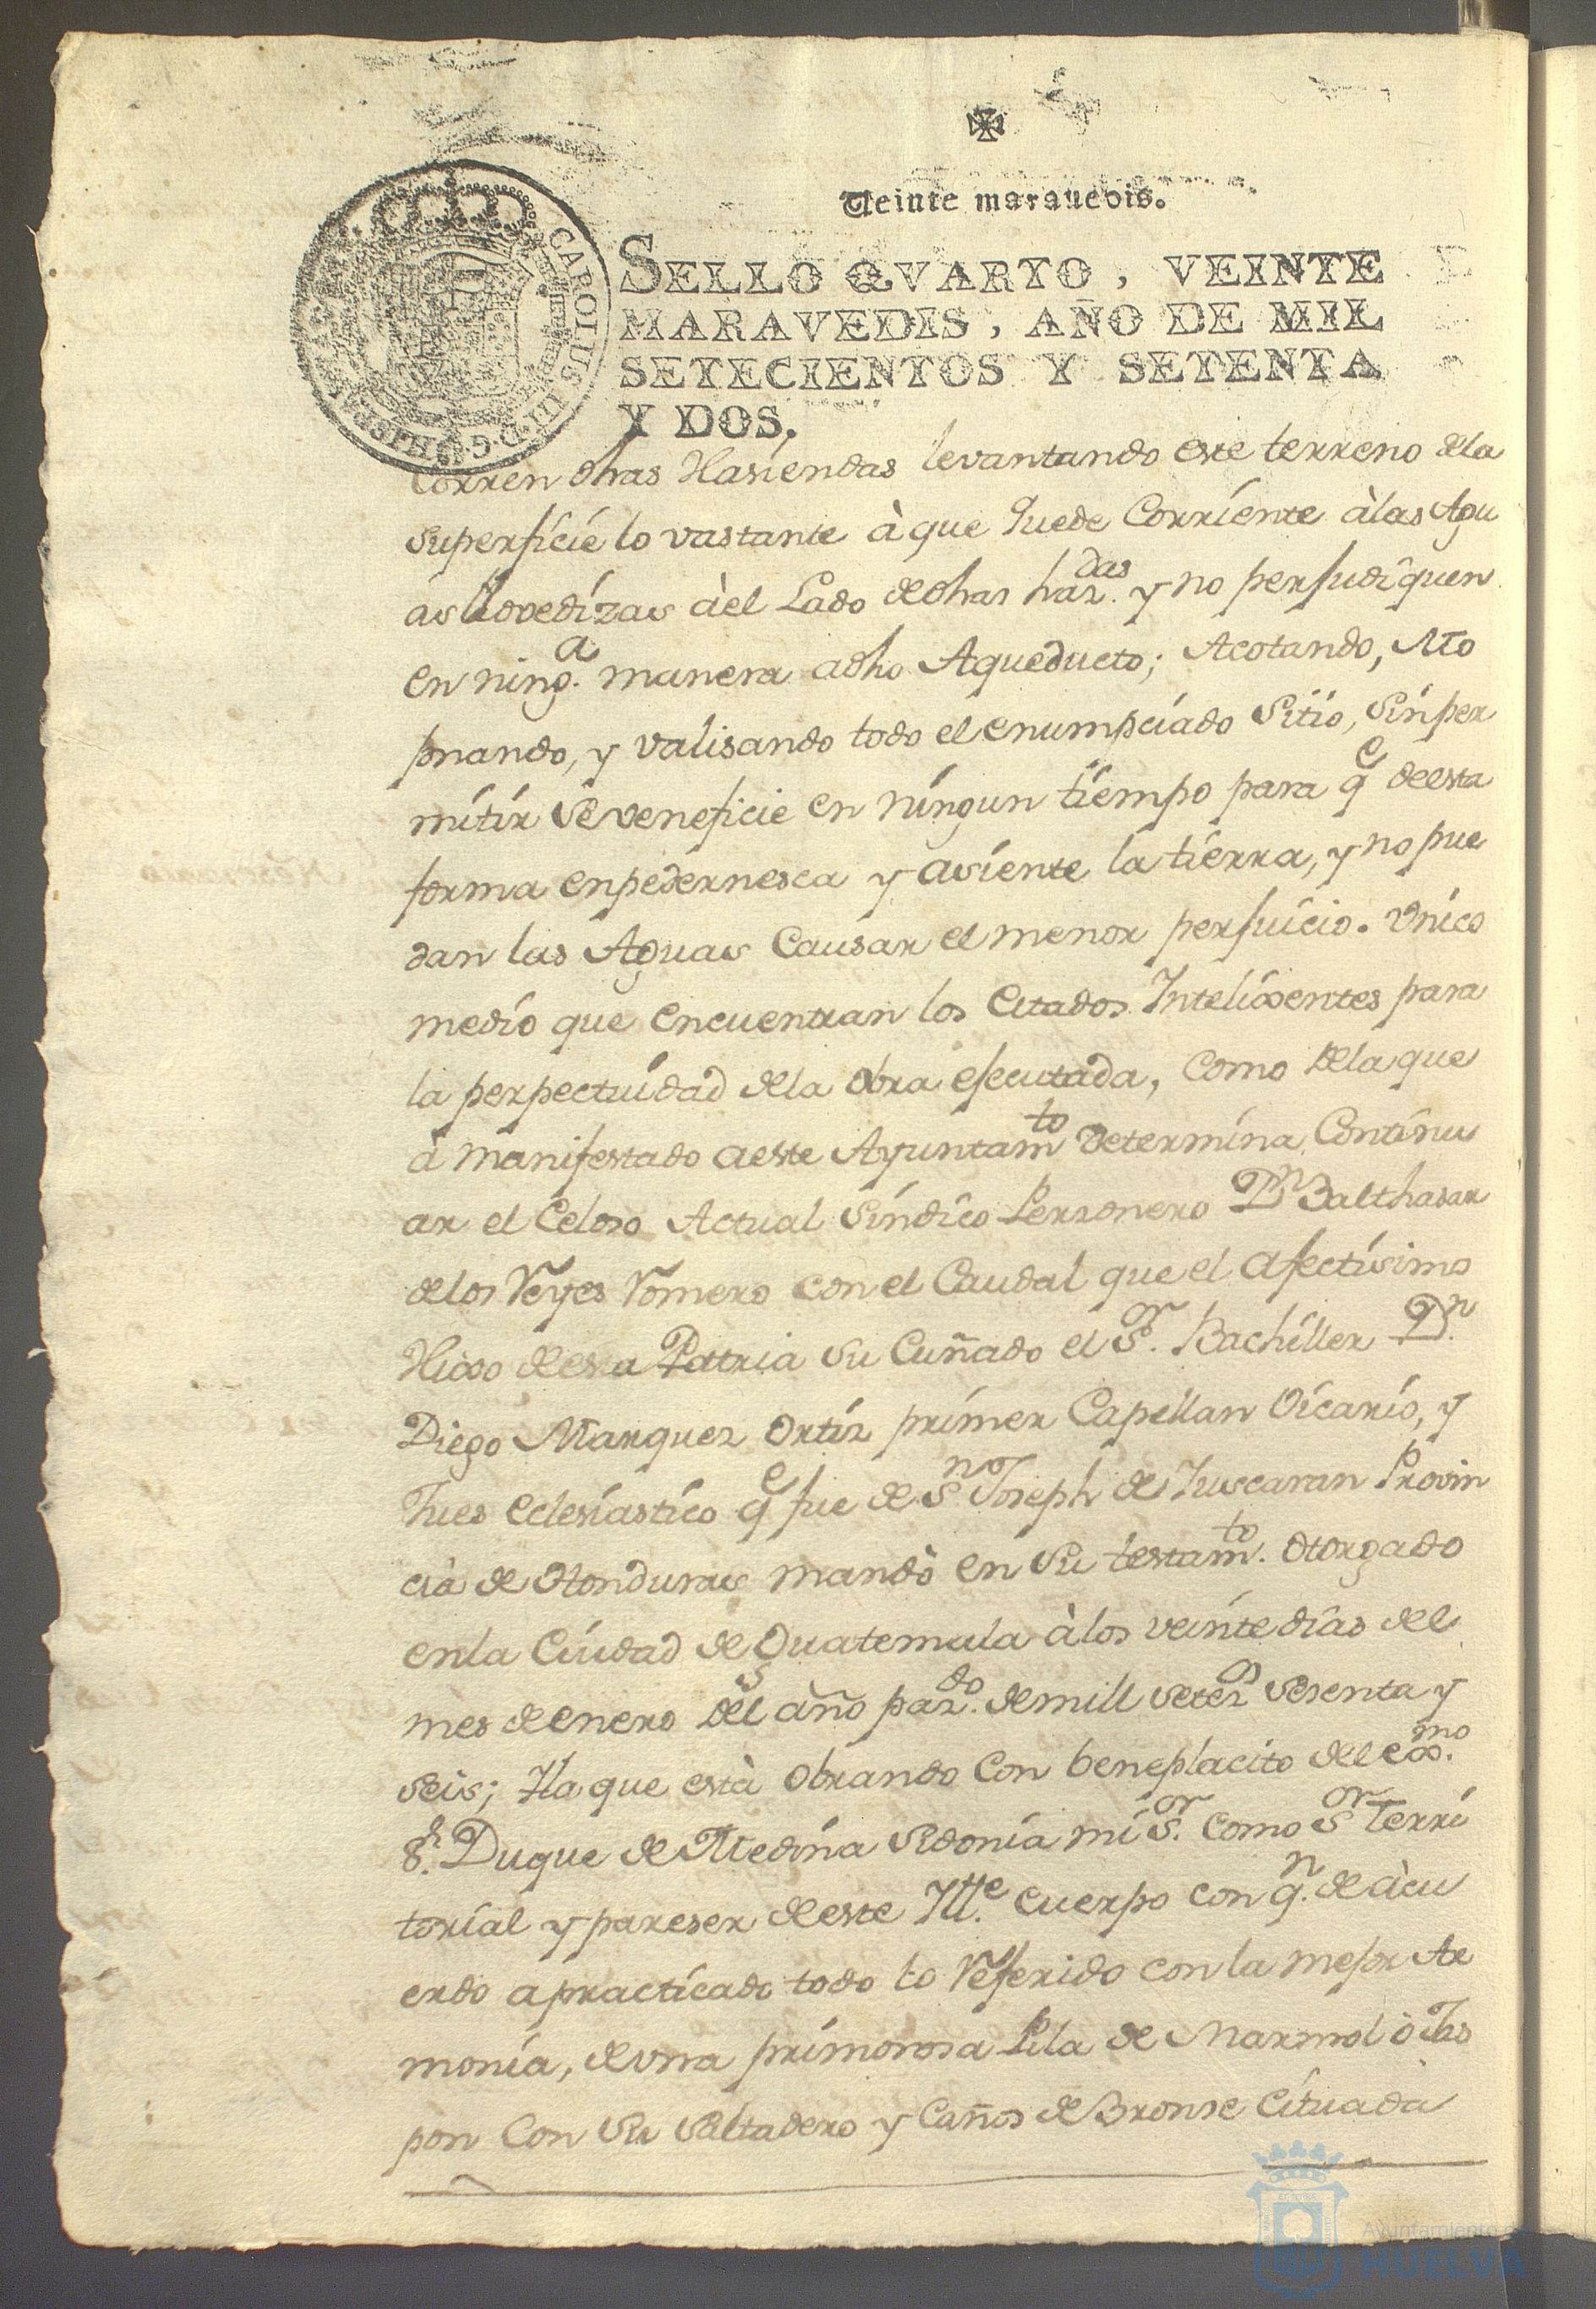 Veinte marauedis.
CAROLUS III D.G. HISP
SELLO QVARTO, VEINTE
MARAVEDIS, AÑO DE MIL
SETECIENTOS Y SETENTA
Y DOS.
Corren dhas Hasiendas levantando este terreno dela
superficie lo vastante à que quede Corriente àlas Agu
as Llovedizas àel Lado dedhas haz.das y no perjudiquen
en ning.a manera adho Aqueducto; Acotando, Mo
jonando, y valisando todo el enumpciado Sitio, Sinper
mitir Se veneficie en ningun tiempo para q.e deesta
forma enpedernesca y asiente la tierra, y no pue
dan las Aguas Causar el menor perjuicio. Vnico
medio que encuentran los Citados Intelixentes para
la perpectuidad dela Obra ejecutada, Como dela que
à manifestado aeste Ayuntam.to determina Continu
ar el Celoso Actual Sindico Personero D.n Balthasar
delos Reyes Romero con el Caudal que el Afectisimo
Hixo de esta Patria su Cuñado el S.or Bachiller D.n
Diego Marquez Ortiz primer Capellan Vicario, y
Jues eclesiastico q.e fue de S.n Joseph de Yuscaran Provin
cia de Honduras mandò en su testam.to Otorgado
enla Ciudad de Guatemala àlos veinte dias del
mes de enero del año paz.do demill Setez.s Sesenta y
seis; Yla que està Obrando Con beneplacito del exx.mo
S.r Duque de Medina Sidonia mi S.or Como S.or Terri
torial y pareser deeste Ill.e Cuerpo con q.n de àcu
erdo apracticado todo lo Referido con la mejor Ar
monia, de vna primorosa Pila de Marmol ò Jas
pon Con su Saltadero y Caños de Bronse Cituada
Ayuntamiento
HUELVA